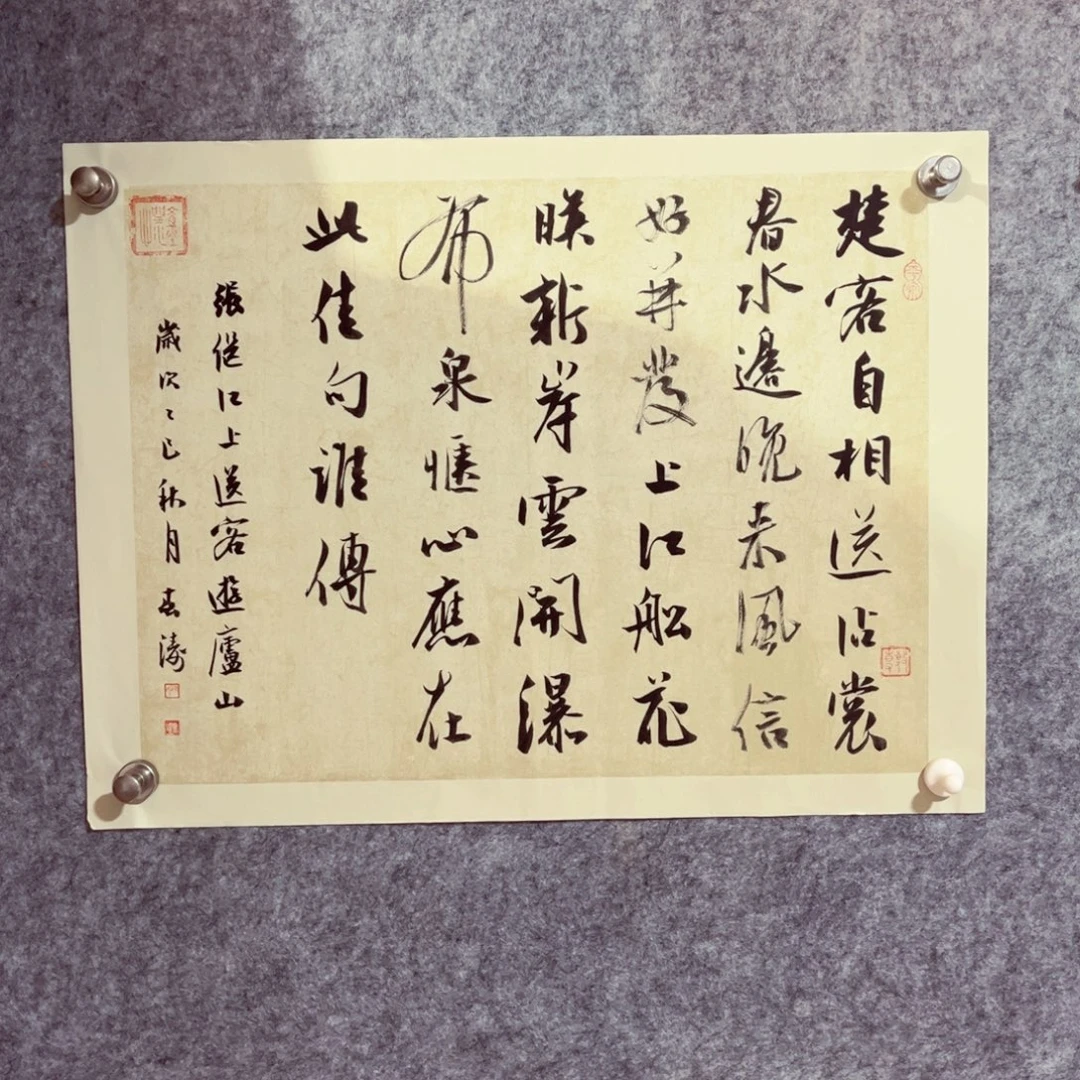 楚客自相送沾裳
春水邊晚来風信
好并發上江船花
映新岸雲開瀑
布泉愜心應在
此佳句誰傳
張継江上送客遊廬山
歲次乙巳秋月春濤